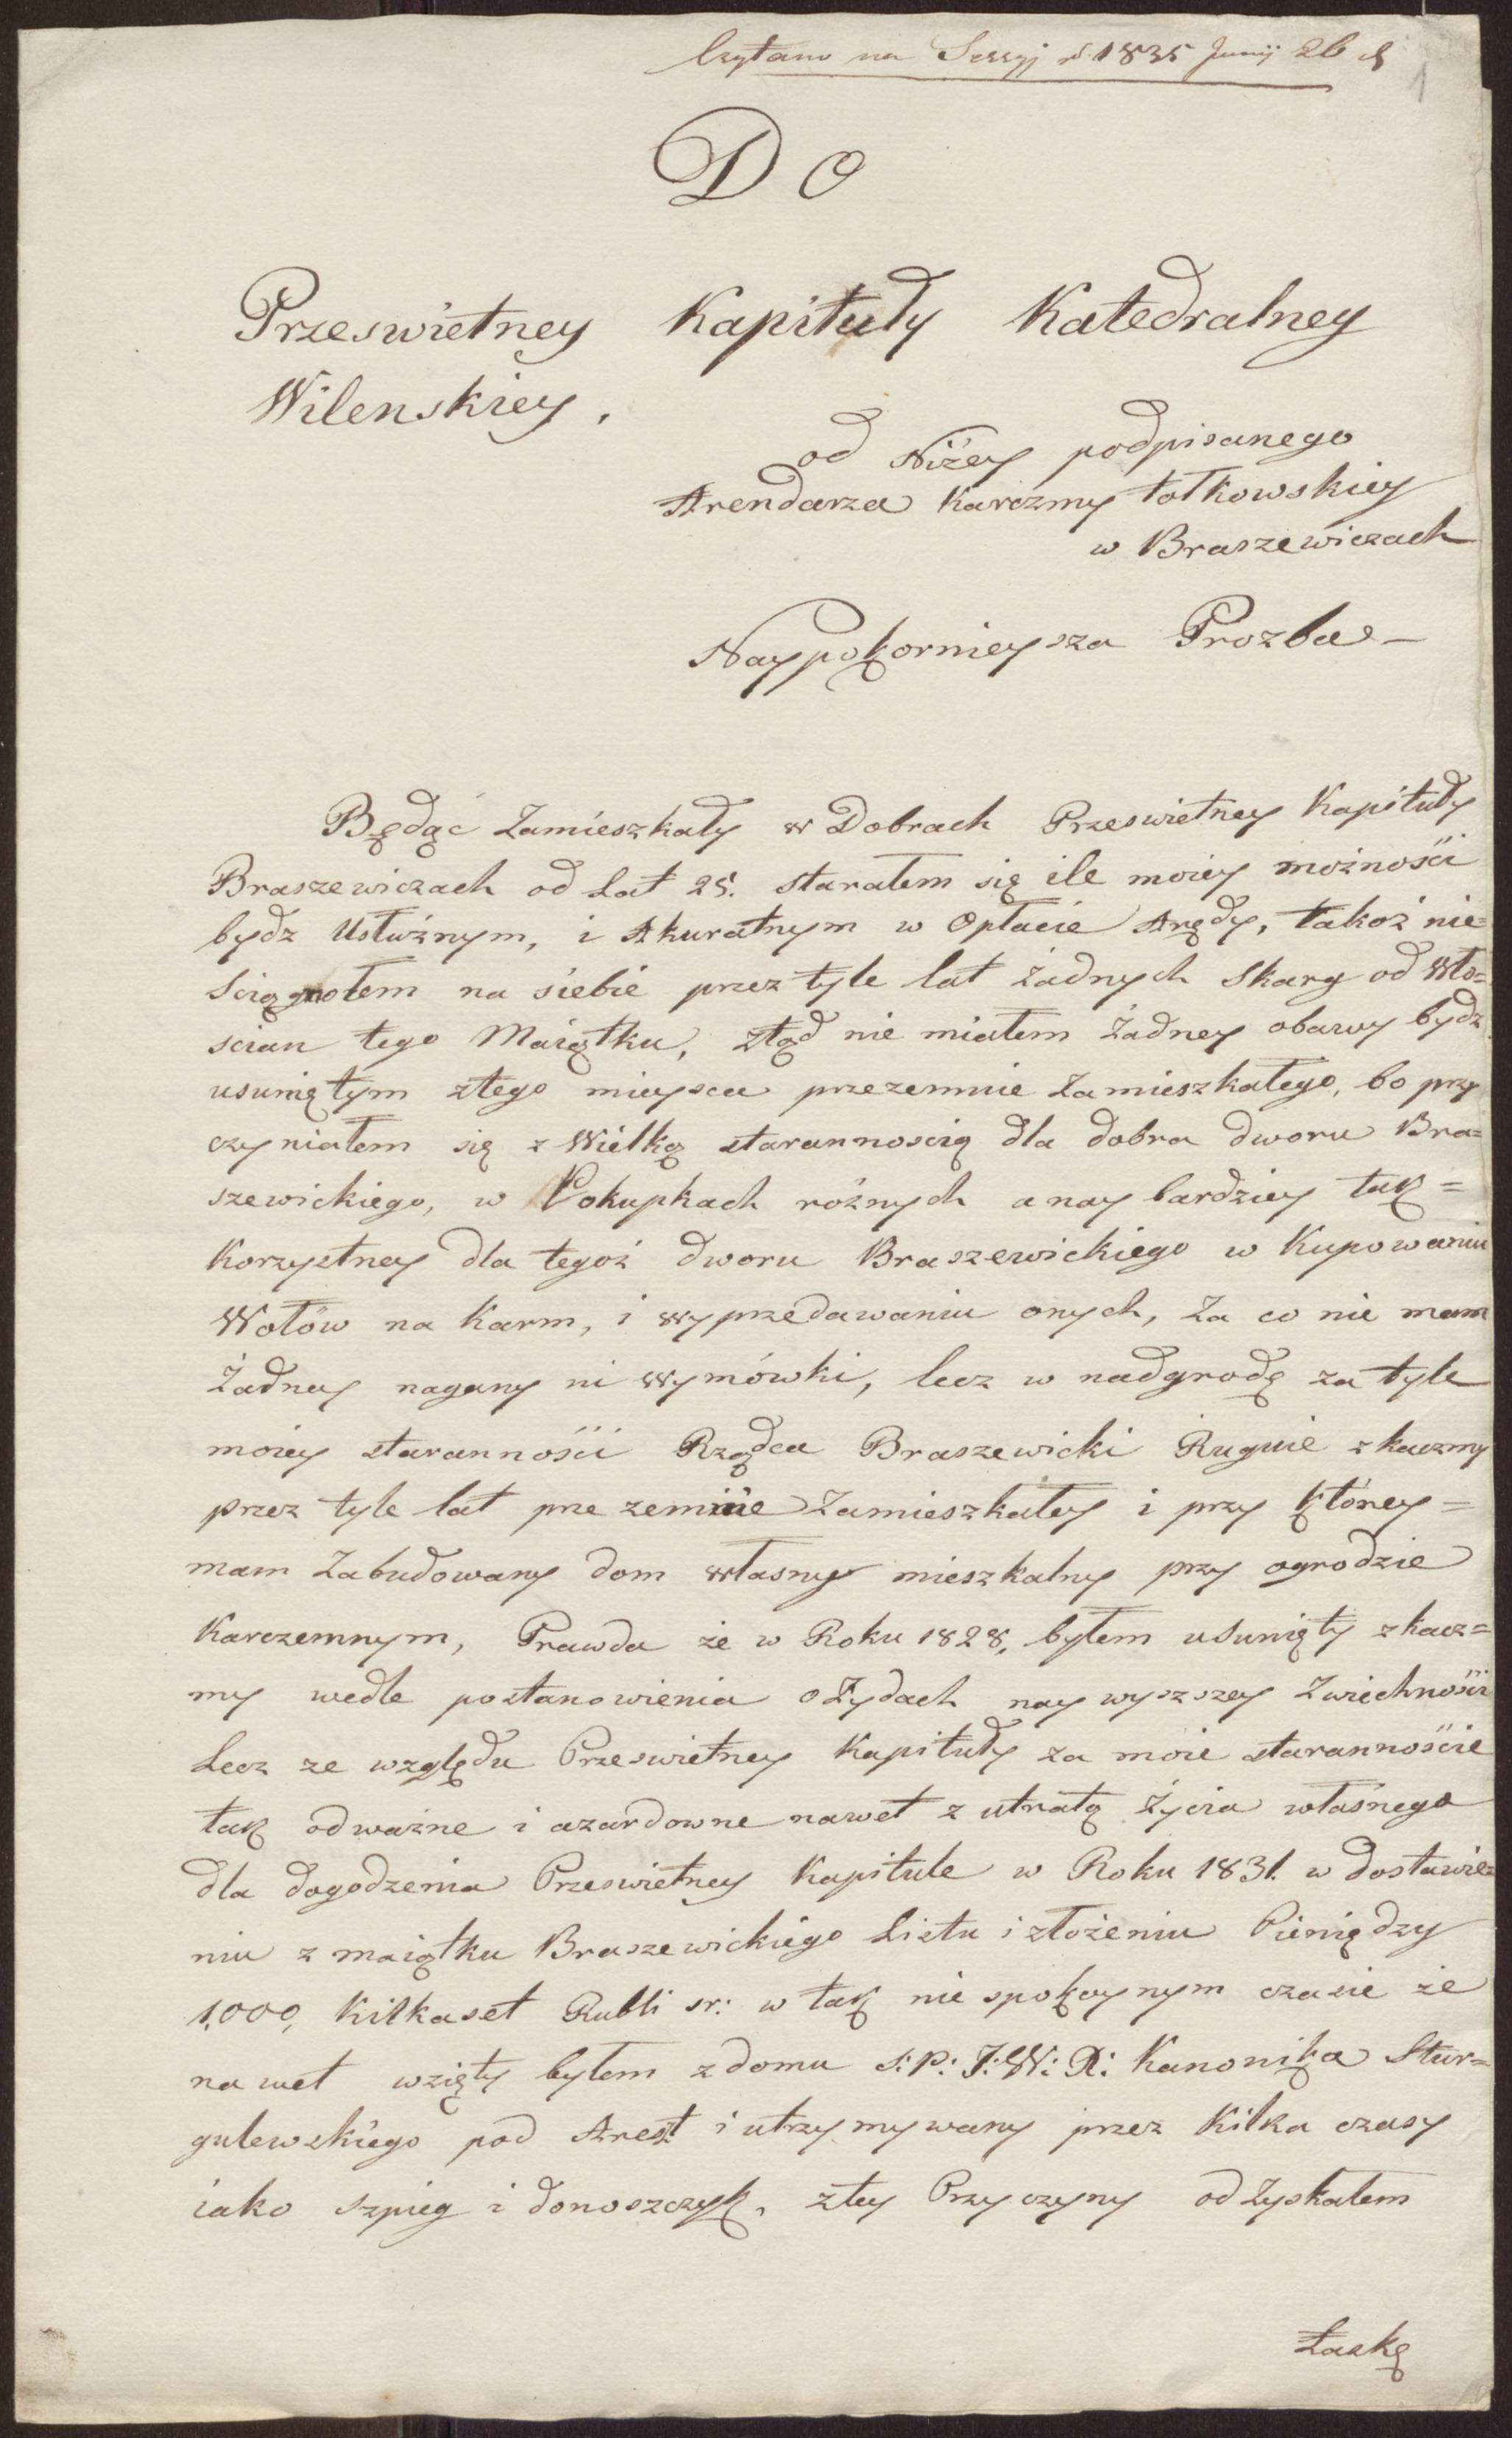 Czytano na Sessyj r 1835 Junij 26 d
1
DO
Przeswietney Kapituły Katedralney
Wilenskiey,
od Niżey podpisanego
Arendarza Karczmy Łotkowskiey
w Braszewiczach
Naypokornieysza Prozba
Będąc Zamieszkały w Dobrach Przeswietney Kapituły
Braszewiczach od Lat 25. starałem się ile moiey możności
bydz Usłużnym, i Akuratnym w Opłacie Arędy, takoż nie=
Sciągnołem na siebie przez tyle lat żadnych Skarg od Wło=
scian tego Maiątku, ztąd nie miałem żadney obawy bydz
usuniętym ztego mieysca przezemnie Zamieszkałego, bo przy
czyniałem się z Wielką starannoscią dla dobra dworu Bra=
szewickiego, w Pokupkach różnych a nay bardziey tak=
Korzystney dla tegoż dworu Braszewickiego w Kupowaniu
Wołów na Karm, i wyprzedawaniu onych, Za co nie mam
Żadney nagany ni wymówki, lecz w nadgrodę za tyle
moiey staranności Rządca Braszewicki Ruguie z kaczmy
przez tyle lat prze zemnie Zamieszkałey i przy którey=
mam Zabudowany dom własny mieszkalny przy ogrodzie
Karczemnym, Prawda że w Roku 1828, byłem usunięty z kacz=
my wedle postanowienia o Żydach nay wyszszey Zwiechności
Lecz ze względu Przeswietney Kapituły za moie starannoście
tak odważne i azardowne nawet z utratą Życia własnego
dla dogodzenia Przeswietney Kapitule w Roku 1831. w dostawie=
niu z maiątku Braszewickiego Listu i złożeniu Pieniędzy
1,000, Kilkaset Rubli sr: w tak nie spokoynym czasie że
na wet wzięty byłem z domu S:P: J:W: X: Kanonika Stur=
gulewskiego pod Arest i utrzymywany przez Kilka czasy
iako szpieg i donoszczyk, ztey Przyczyny od Zyskałem
Łaskę